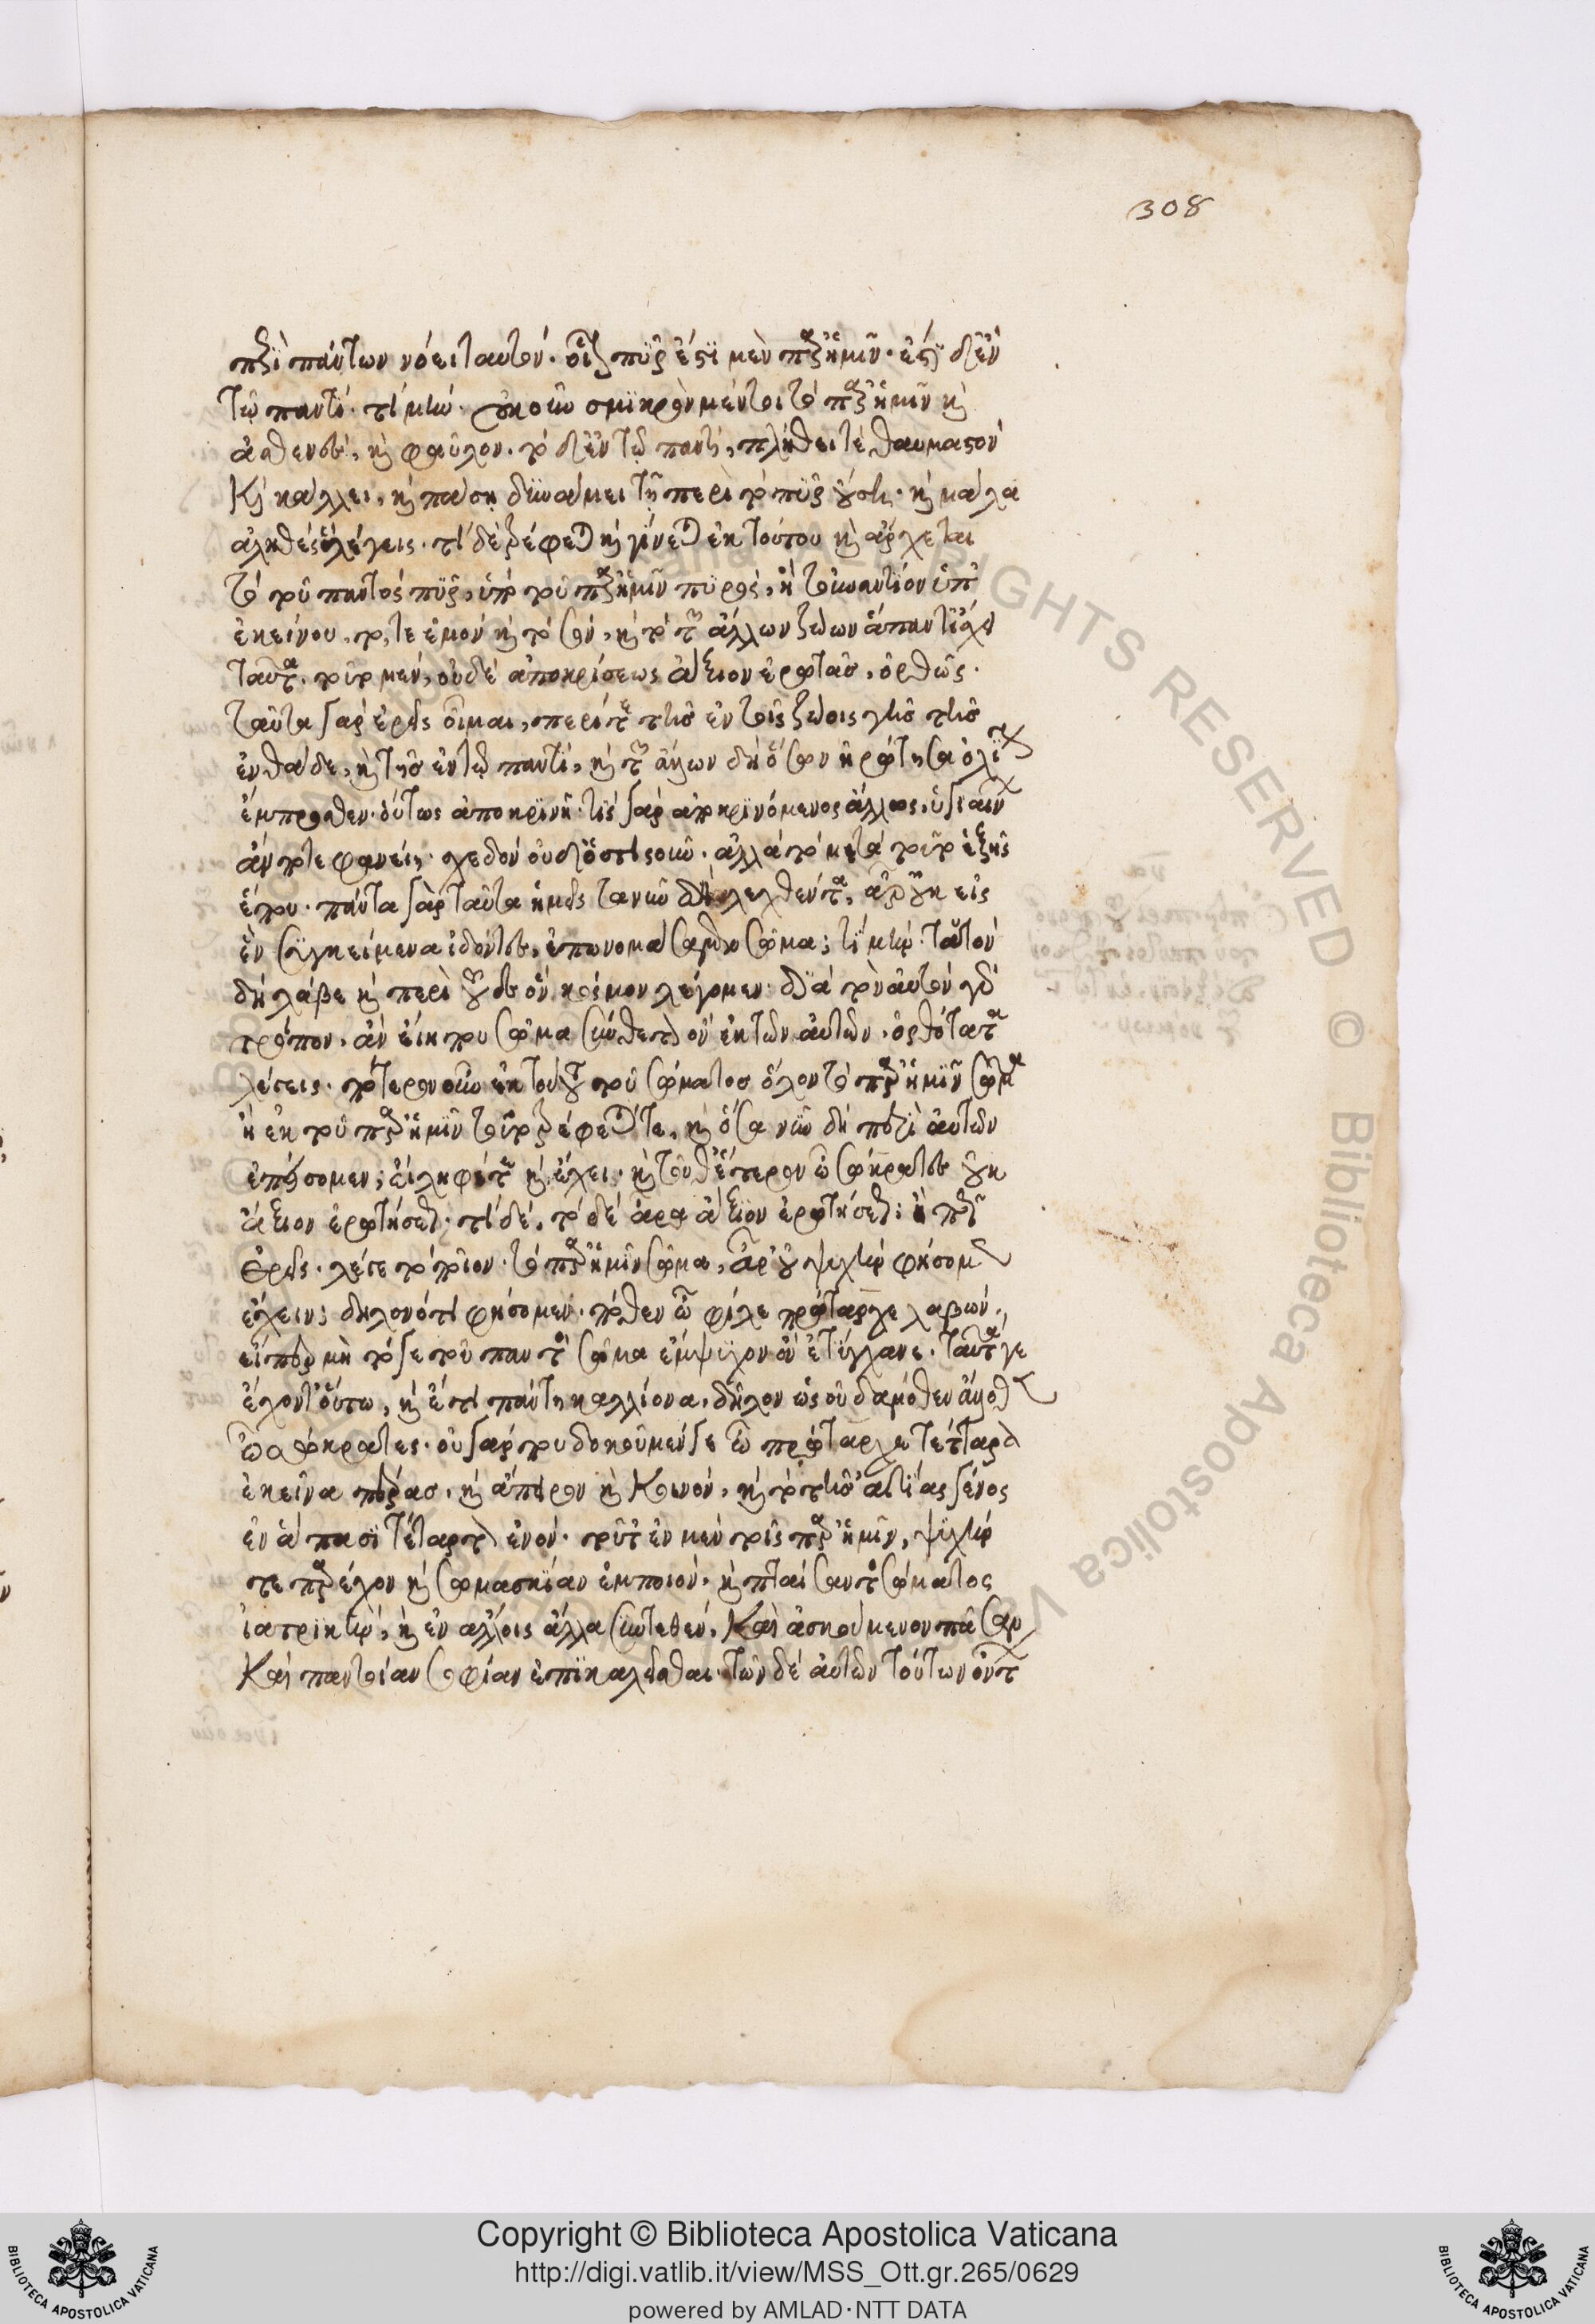 308
περὶ πάντων νόει ταυτόν. οἷον πῦρ ἔστι μὲν παρ' ἡμῖν. ἔστι δ' ἐν
τῷ παντί. τί μήν. οὐκοῦν σμικρὸν μέν τι τὸ παρ' ἡμῖν καὶ
ἀσθενὲς, καὶ φαῦλον. τὸ δ' ἐν τῷ παντὶ, πλήθει τὲ θαυμαστὸν
καὶ κάλλει, καὶ πάσῃ δυνάμει τῇ περὶ τὸ πῦρ οὔσῃ. καὶ μάλα
ἀληθὲς ὃ λέγεις. τί δὲ τρέφεται καὶ γίνεται ἐκ τούτου καὶ ἄρχεται
τὸ τοῦ παντὸς πῦρ, ὑπὸ τοῦ παρ' ἡμῖν πυρὸς, ἢ τοὐναντίον ὑπ'
ἐκείνου, τό, τε ἐμὸν καὶ τὸ σὸν, καὶ τὸ τῶν ἄλλων ζώων ἅπαντ' ἔχει
ταῦτα. τοῦτο μὲν, οὐδὲ ἀποκρίσεως ἄξιον ἐρωτᾷς. ὀρθῶς.
ταῦτα γὰρ ἐρεῖς οἶμαι, περί τε τῆς ἐν τοῖς ζώοις γῆς τῆς
ἐνθάδε, καὶ τῆς ἐν τῷ παντί, καὶ τῶν ἄλλων δὴ ὅσων ἠρώτησα ὀλίγον
ἔμπροσθεν. οὕτως ἀποκρινῇ. τίς γὰρ ἀποκρινόμενος ἄλλως, ὑγιαίνων
ἄν ποτε φανείη. σχεδὸν οὐδ' ὅστις οὖν. ἀλλὰ τὸ μετὰ τοῦτο ἑξῆς
ἕπου. πάντα γὰρ ταῦτα ἡμεῖς τὰ νῦν δὴ λεχθέντα, ἆρ' οὐκ εἰς
ἓν συγκείμενα ἰδόντες, ἐπωνομάσαμεν σῶμα; τί μήν. ταυτὸν
δὴ λάβε καὶ περὶ τοῦδε ὃν κόσμον λέγομεν. διὰ τὸν αὐτὸν γὰρ
τρόπον, ἂν εἴη που σῶμα σύνθετον ὂν ἐκ τῶν αὐτῶν. ὀρθότατα
λέγεις. πότερον οὖν ἐκ τούτου τοῦ σώματος ὅλον τὸ παρ' ἡμῖν σῶμα
ἢ ἐκ τοῦ παρ' ἡμῖν τοῦτο τρέφεταί τε, καὶ ὅσα νῦν δὴ περὶ αὐτῶν
εἴπομεν; εἴληφέ τε καὶ ἔχει. καὶ τοῦθ' ἕτερον ὦ σώκρατες οὐκ
ἄξιον ἐρωτήσεως. τί δέ, τὸ δὲ ἆρα ἄξιον ἐρωτήσεως; ἢ πῶς
ἐρεῖς. λέγε τὸ ποῖον. τὸ παρ' ἡμῖν σῶμα, ἆρ' οὐ ψυχὴν φήσομεν
ἔχειν; δῆλον ὅτι φήσομεν. πόθεν ὦ φίλε πρώταρχε λαβών.
εἴπερ μὴ τό γε τοῦ παντὸς σῶμα ἔμψυχον ὂν ἐτύγχανε. ταυτά γε
ἔχον τούτῳ, καὶ ἔτι πάντῃ καλλίονα. δῆλον ὡς οὐδαμόθεν ἄλλοθεν
ὦ σώκρατες. οὐ γάρ που δοκοῦμέν γε ὦ πρώταρχε τέτταρα
ἐκεῖνα πέρας, καὶ ἄπειρον καὶ κοινὸν, καὶ τὸ τῆς αἰτίας γένος
ἐν ἅπασι τέταρτον ἐνόν. τοῦτ' ἐν μὲν τοῖς παρ' ἡμῖν, ψυχήν
τε παρέχον καὶ σωμασκίαν ἐμποιοῦν, καὶ πταίσαντος σώματος
ἰατρικὴν, καὶ ἐν ἄλλοις ἄλλα συντεθὲν, καὶ ἀσκούμενον πᾶσαν
καὶ παντοίαν σοφίαν ἐπικαλεῖσθαι. τῶν δὲ αὐτῶν τούτων ὄντων
Copyright © Biblioteca Apostolica Vaticana
http://digi.vatlib.it/view/MSS_Ott.gr.265/0629
powered by AMLAD·NTT DATA
BIBLIOTECA APOSTOLICA VATICANA
BIBLIOTECA APOSTOLICA VATICANA